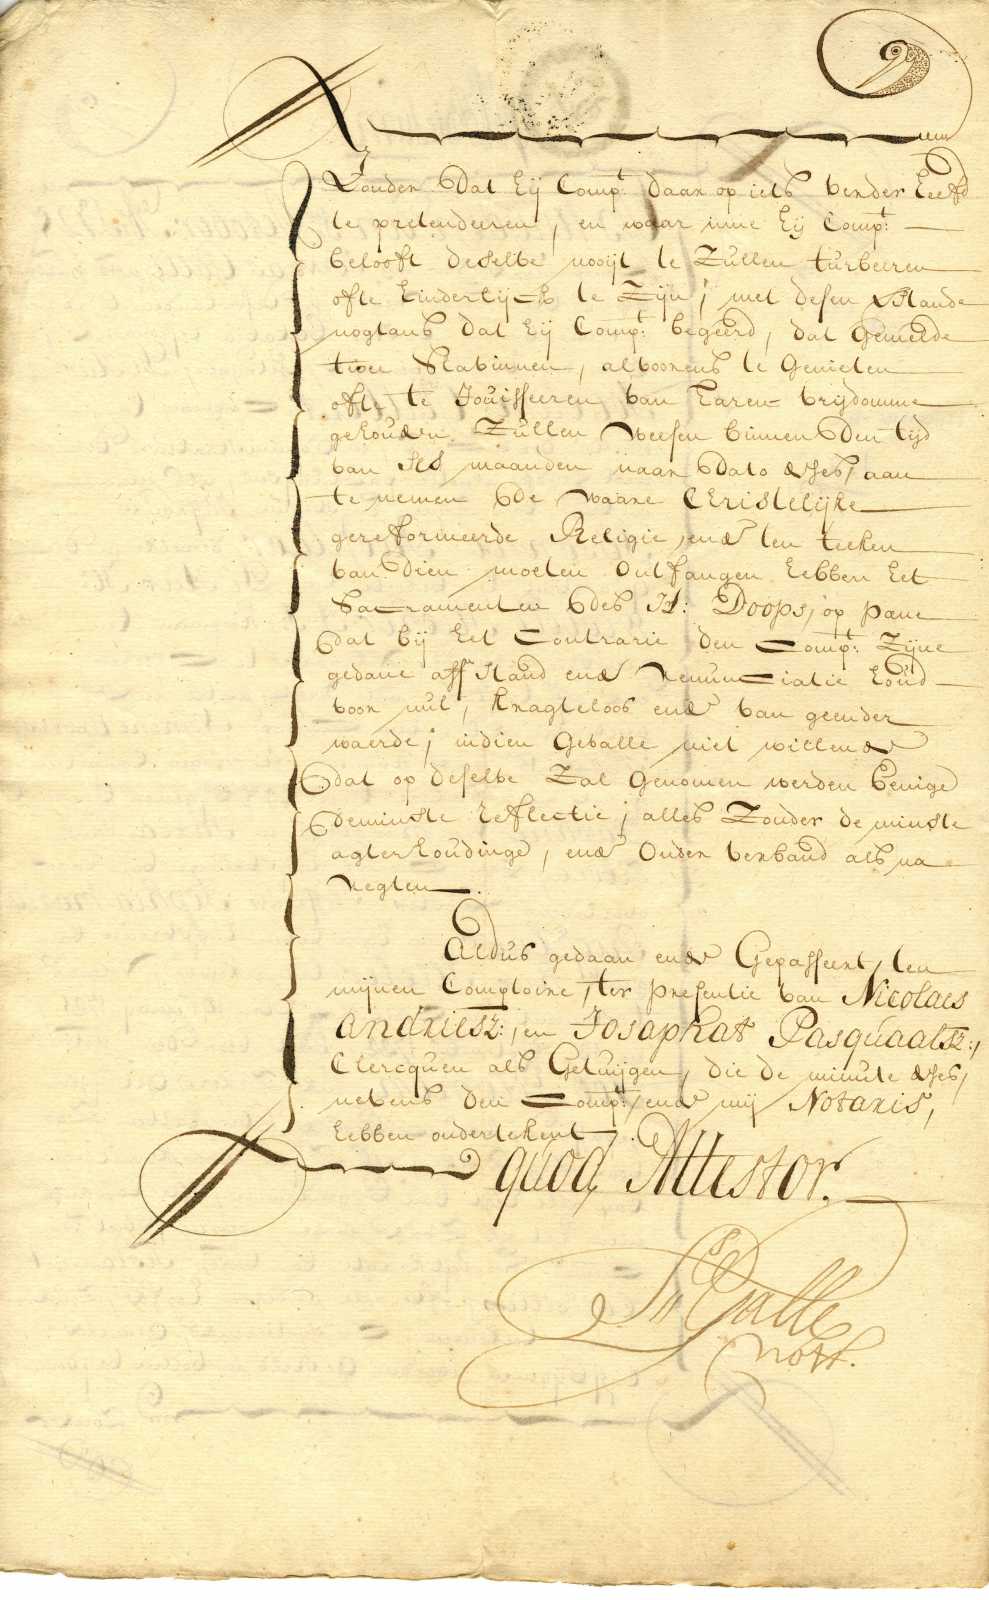 Zouden dat hij Comp:t daar op iets verder heefd
te pretendeeren, en waar inne hij Comp:t
belooft deselve nooijt te Zullen turbeeren
ofte hinderlijck te Zijn; met desen Verstande
nogtans dat hij Comp:t begeerd, dat Gemelde
twee Slavinnen, alvoorens te Genieten
ofte te Jouisseeren van haren vrijdomme
gehouden Zullen Weesen binnen den tijd
van ses maanden naar dato deses, aan
te nemen de waare Christelijke
gereformeerde Religie, ende ten teeken
van dien moeten Ontfangen hebben het
Sacramenten des H: Doops, op pane
dat bij het Contrarie den Comp:t Zijne
gedane affstand ende Renunciatie houd
voor nul, kragteloos ende van geender
waerde; indien Gevalle niet willende
dat op deselve Zal Genomen werden Eenige
deminste reflectie; alles Zonder de minste
agterhoudinge, ende Onder verband als na
regten.
Aldus gedaan ende Gepasseert, ten
mijnen Comptoire, ter presentie van Nicolaes
Andriesz:, en Josaphat Pasquaalsz:,
Clercquen als Getuijgen, die de minute deses,
nevens den Comp:t, ende mij Notaris,
hebben ondertekent.
quod Attestor.
Galle
nots.